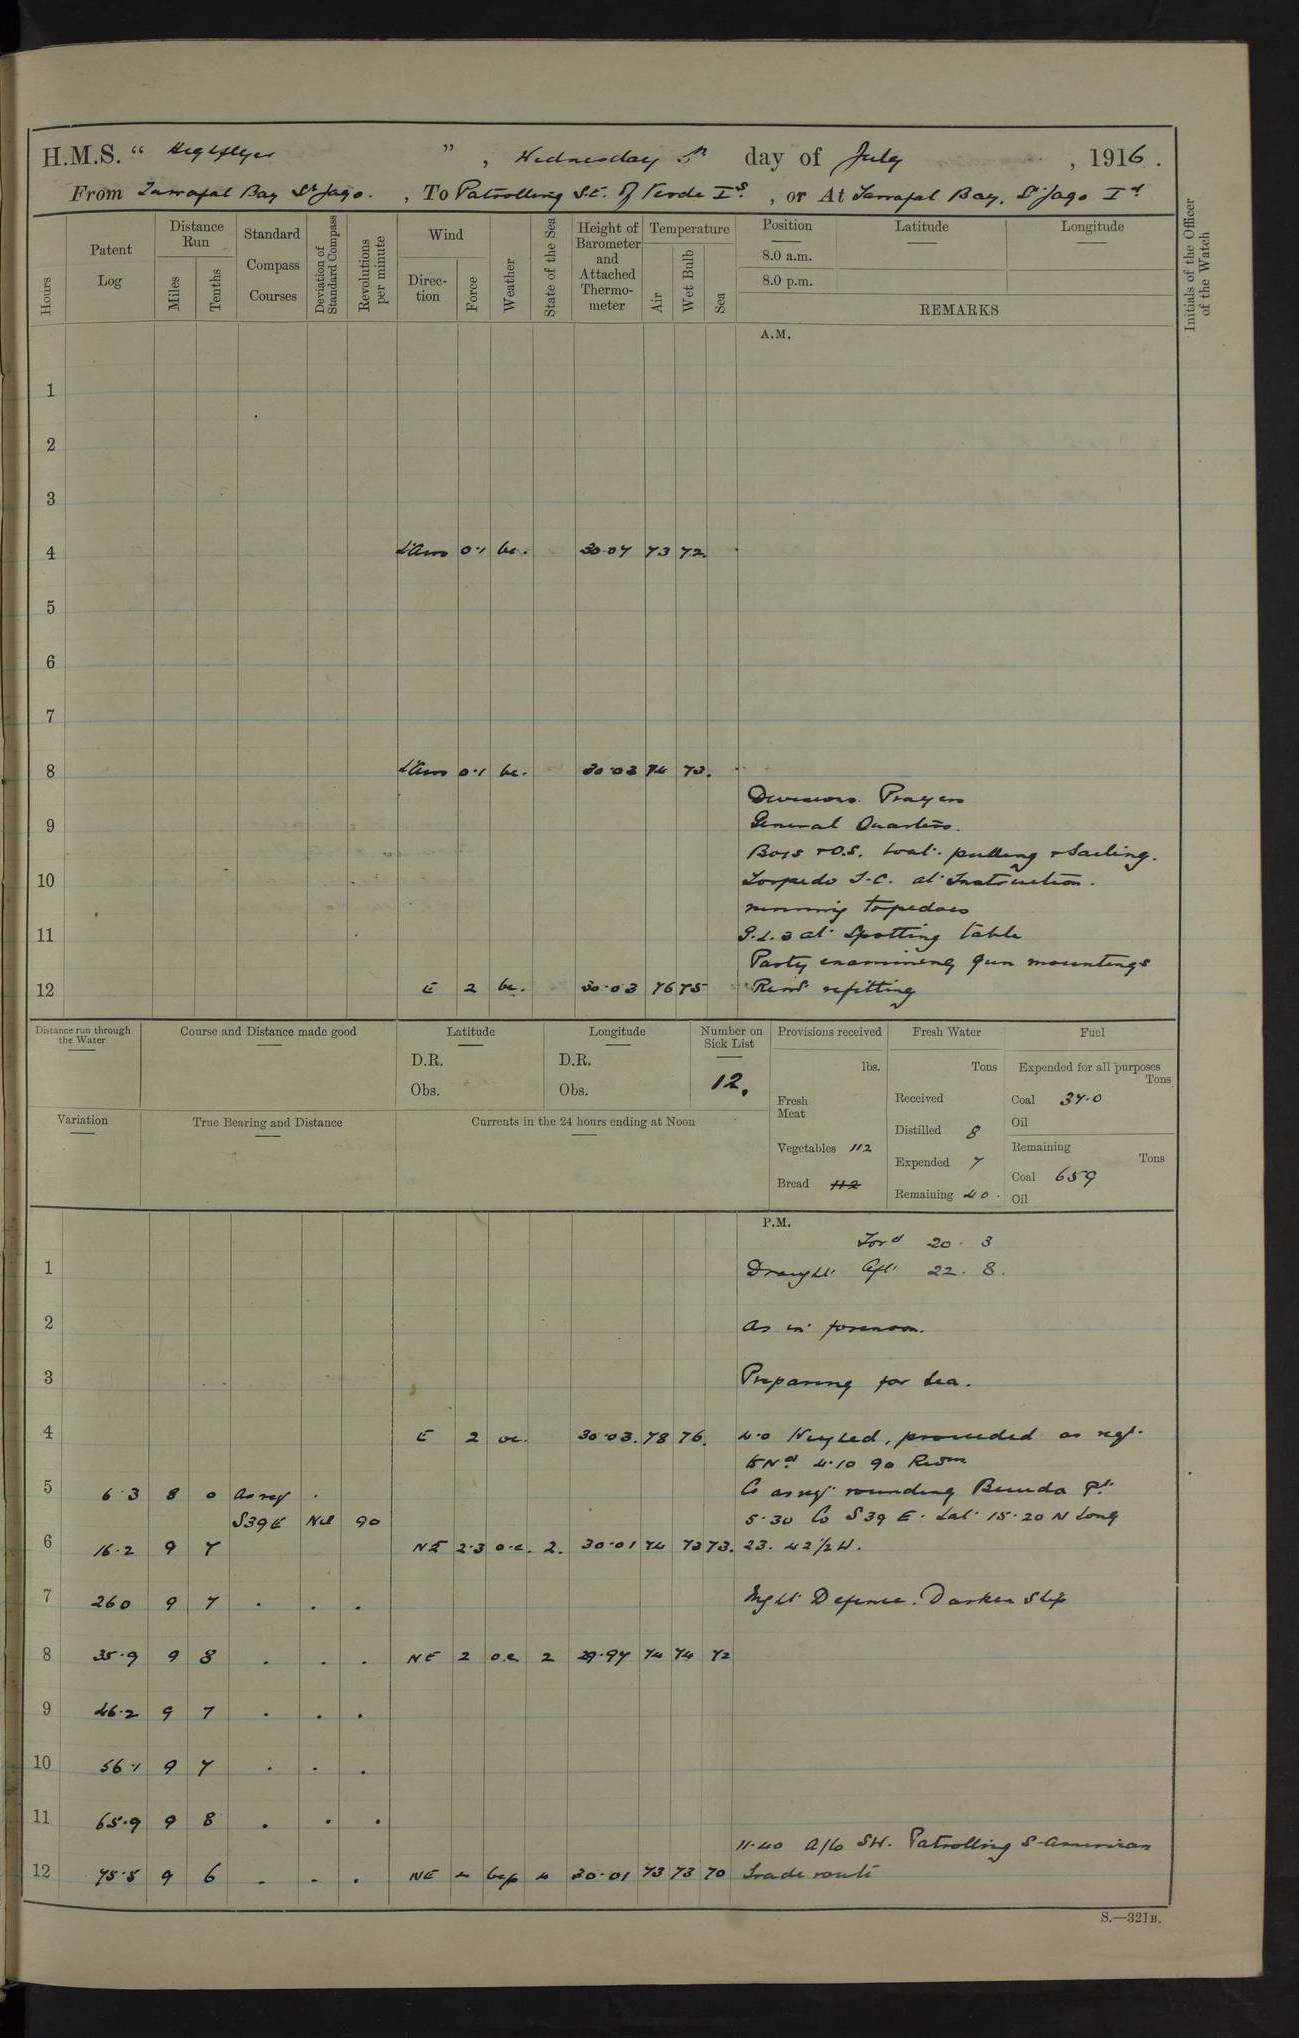 H.M.S. " Highflyer ", Wednesday 5th day of July, 1916.
From Tarrafal Bay St Jago., To Patrolling S.E. of Verde Is., or At Tarrafal Bay, St Jago Id
Hours
Patent Log
Distance Run
Miles
Tenths
Standard Compass Courses
Deviation of Standard Compass
Revolutions per minute
Wind
Direction
Force
Weather
State of the Sea
Height of Barometer and Attached Thermometer
Temperature
Air
Wet Bulb
Sea
Position
8.0 a.m.
8.0 p.m.
Latitude
Longitude
REMARKS
Initials of the Officer of the Watch
A.M.
1
2
3
4 L'Airs 0·1 bc. 30·04 73 72.
5
6
7
8 L'Airs 0·1 bc. 30·03 74 73.
Divisions. Prayers
9 General Quarters.
Boys & O.S. boat pulling & Sailing.
10 Torpedo T.C. at Instruction.
running torpedoes
11 G.L.3 at Spotting table
Party examining gun mountings
12 E 2 bc. 30·03 76 75 Remr refitting
Distance run through the Water
Course and Distance made good
Latitude
D.R.
Obs.
Longitude
D.R.
Obs.
Number on Sick List
12.
Provisions received
lbs.
Fresh Meat
Vegetables 112
Bread 112
Fresh Water
Tons
Received
Distilled 8
Expended 7
Remaining 40.
Fuel
Expended for all purposes
Tons
Coal 34·0
Oil
Remaining
Tons
Coal 659
Oil
Variation
True Bearing and Distance
Currents in the 24 hours ending at Noon
P.M.
Ford 20. 3
1 Draught Aft 22. 8.
2 As in forenoon.
3 Preparing for Sea.
4 E 2 oc. 30·03. 78 76. 4·0 Weighed, proceeded as reqt.
4·10 90 Revns
5 6·3 8 0 As req . Co as reqt rounding Pt.
S39E Nil 90 5·30 Co S 39 E. Lat 15·20 N Long
6 16·2 9 7 NE 2·3 o.c. 2. 30·01 74 73 73. 23. 42½ W.
7 26·0 9 7 . . . Night Defence. Darken Ship
8 35·9 9 8 . . . NE 2 o.c. 2 29·97 74 74 72
9 46·2 9 7 . . .
10 56·1 9 7 . . .
11 65·9 9 8 . . .
11·40 A/Co SW. Patrolling S-American
12 75·5 9 6 . . . NE 4 bcp 4 30·01 73 73 70 Trade route
S.—321B.